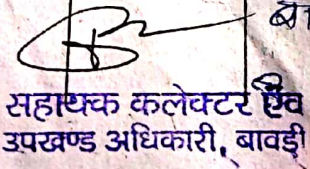 सहायक कलेक्टर एंव
उपखण्ड अधिकारी, बावड़ी